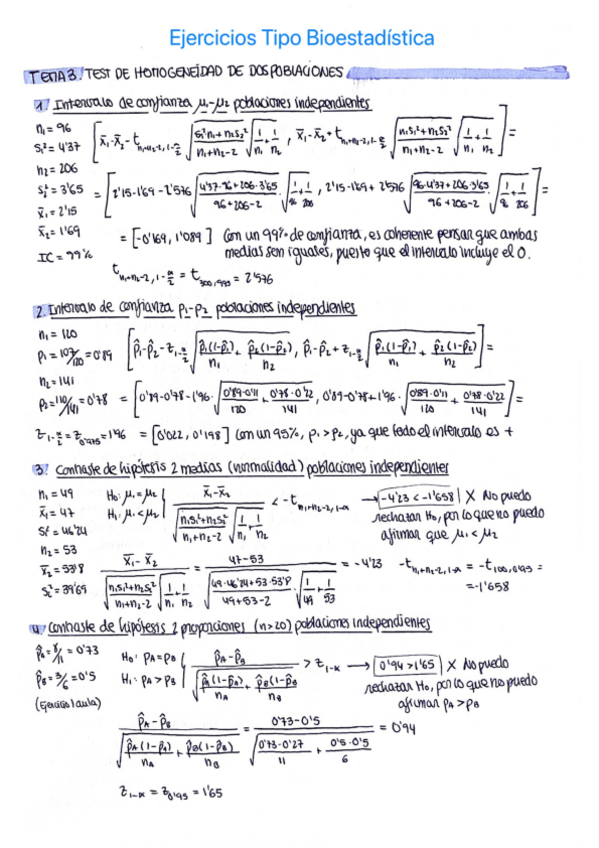 Ejercicios Tipo Bioestadística
TEMA 3. TEST DE HOMOGENEIDAD DE DOS POBLACIONES
1. Intervalo de confianza μ₁-μ₂ poblaciones independientes
n₁ = 96
S₁² = 4'37
n₂ = 206
S₂² = 3'65
x̄₁ = 2'15
x̄₂ = 1'69
IC = 99%
[x̄₁-x̄₂ - t_{n₁+n₂-2, 1-α/2} √((S₁²n₁+n₂S₂²)/(n₁+n₂-2)) √(1/n₁+1/n₂), x̄₁-x̄₂ + t_{n₁+n₂-2, 1-α/2} √((n₁S₁²+n₂S₂²)/(n₁+n₂-2)) √(1/n₁+1/n₂)] =
= [2'15-1'69-2'576 √((4'37·96+206·3'65)/(96+206-2)) · √(1/96+1/206), 2'15-1'69+2'576 √((96·4'37+206·3'65)/(96+206-2)) · √(1/96+1/206)] =
= [-0'169, 1'089] Con un 99% de confianza, es coherente pensar que ambas
medias son iguales, puesto que el intervalo incluye el 0.
t_{n₁+n₂-2, 1-α/2} = t_{300, 0'995} = 2'576
2. Intervalo de confianza p₁-p₂ poblaciones independientes
n₁ = 120
p₁ = 107/120 = 0'89
n₂ = 141
p₂ = 110/141 = 0'78
[p̂₁-p̂₂ - z_{1-α/2} √(p̂₁(1-p̂₁)/n₁ + p̂₂(1-p̂₂)/n₂), p̂₁-p̂₂ + z_{1-α/2} √(p̂₁(1-p̂₁)/n₁ + p̂₂(1-p̂₂)/n₂)] =
= [0'89-0'78-1'96· √(0'89·0'11/120 + 0'78·0'22/141), 0'89-0'78+1'96· √(0'89·0'11/120 + 0'78·0'22/141)] =
z_{1-α/2} = z_{0'975} = 1'96 = [0'022, 0'198] Con un 95%, p₁ > p₂, ya que todo el intervalo es +
3. Contraste de hipótesis 2 medias (normalidad) poblaciones independientes
n₁ = 49
x̄₁ = 47
S₁² = 46'24
n₂ = 53
x̄₂ = 53'8
H₀: μ₁ = μ₂
H₁: μ₁ < μ₂
(x̄₁-x̄₂)/(√((n₁S₁²+n₂S₂²)/(n₁+n₂-2)) √(1/n₁+1/n₂)) < -t_{n₁+n₂-2, 1-α} → -4'23 < -1'658 | X No puedo
rechazar H₀, por lo que no puedo
afirmar que μ₁ < μ₂
(x̄₁-x̄₂)/(√((n₁S₁²+n₂S₂²)/(n₁+n₂-2)) √(1/n₁+1/n₂)) = (47-53)/(√((49·46'24+53·53'8)/(49+53-2)) · √(1/49+1/53)) = -4'23
-t_{n₁+n₂-2, 1-α} =
= -1'658
4. Contraste de hipótesis 2 proporciones (n>20) poblaciones independientes
p̂_A = 8/11 = 0'73
p̂_B = 3/6 = 0'5
(Ejercicio 1 aula)
H₀: p_A = p_B
H₁: p_A > p_B
(p̂_A-p̂_B)/√(p̂_A(1-p̂_A)/n_A + p̂_B(1-p̂_B)/n_B) > z_{1-α} → 0'94 > 1'65 | X No puedo
rechazar H₀, por lo que no puedo
afirmar p_A > p_B
(p̂_A-p̂_B)/√(p̂_A(1-p̂_A)/n_A + p̂_B(1-p̂_B)/n_B) = (0'73-0'5)/√(0'73·0'27/11 + 0'5·0'5/6) = 0'94
z_{1-α} = z_{0'95} = 1'65